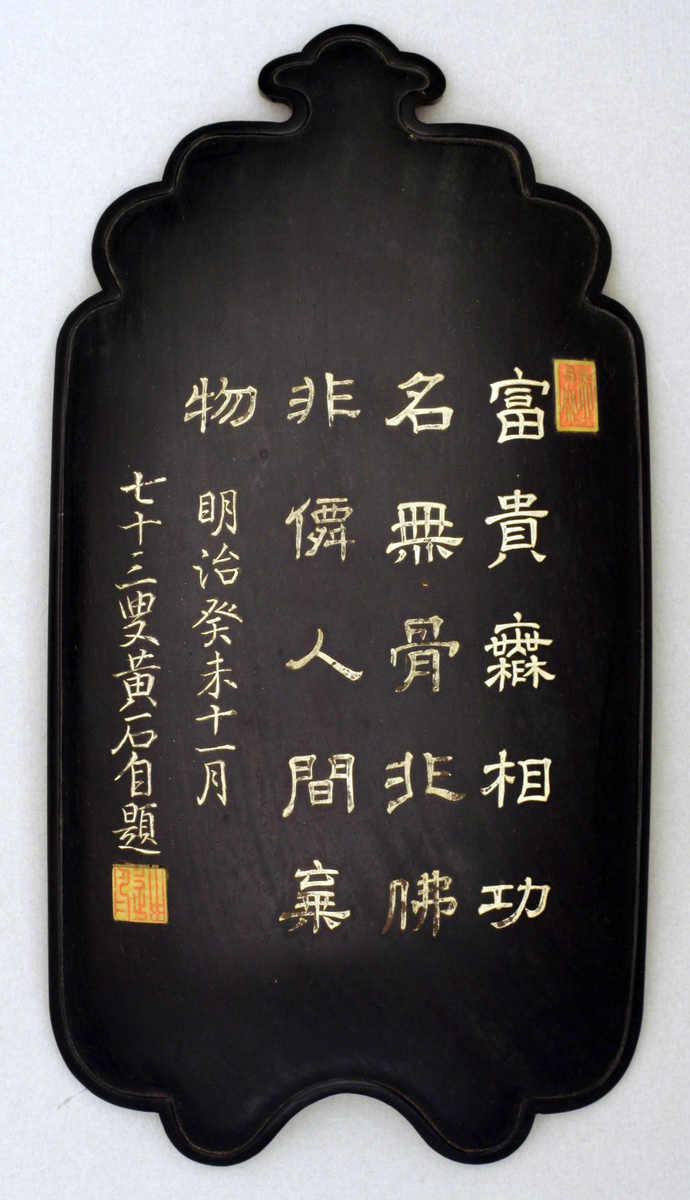 富貴無相功
名無骨非佛
非僊人間棄
物 明治癸未十一月
七十三叟黃石自題